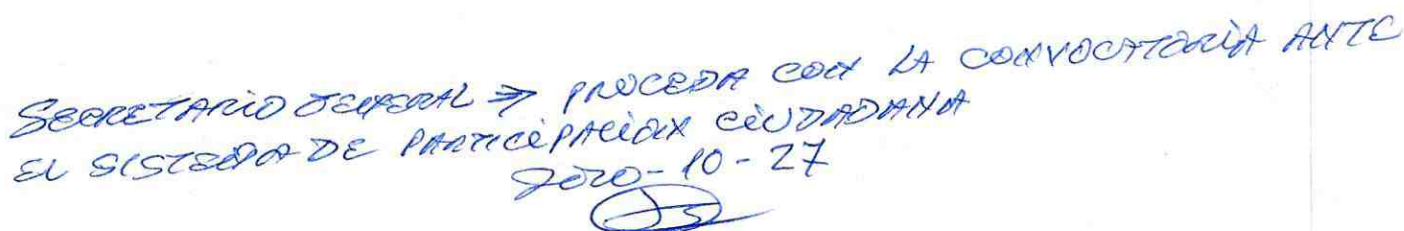 SECRETARIO GENERAL => PROCEDA CON LA CONVOCATORIA ANTE
EL SISTEMA DE PARTICIPACION CIUDADANA
2020-10-27